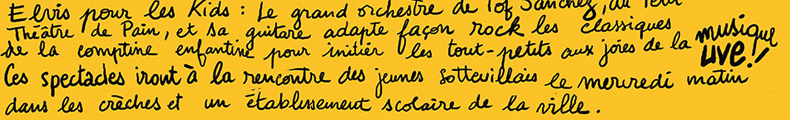 Elvis pour les Kids : Le grand orchestre de Tof Sanchez, du Petit
Théâtre de Pain, et sa guitare adapte façon rock les classiques
de la comptine enfantine pour initier les tout-petits aux joies de la musique
LIVE !
Ces spectacles iront à la rencontre des jeunes Sottevillais le mercredi matin
dans les crèches et un établissement scolaire de la ville.